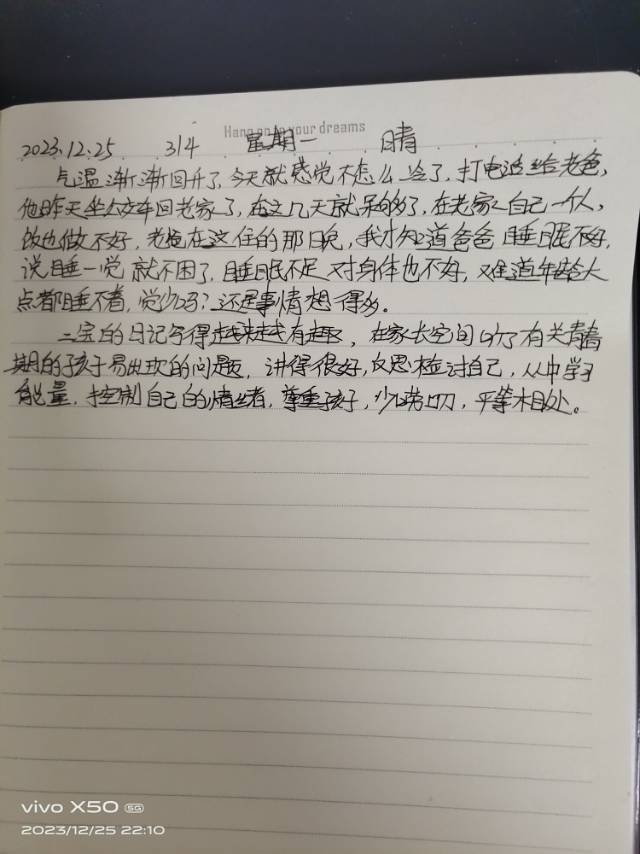 Hang on to your dreams
2023.12.25 314 星期一 晴
气温渐渐回升了,今天就感觉不怎么冷了,打电话给老爸,
他昨天坐公交车回老家了,在这几天就呆够了,在老家自己一个人,
饭也做不好,老爸在这住的那晚,我才知道爸爸睡眠不好,
说睡一觉就不困了,睡眠不足对身体也不好,难道年龄大
点都睡不着,觉少吗?还是事情想得多。
二宝的日记写得越来越有趣,在家长空间听了有关青春
期的孩子易出现的问题,讲得很好,反思检讨自己,从中学习
能量,控制自己的情绪,尊重孩子,少唠叨,平等相处。
vivo X50 5G
2023/12/25 22:10